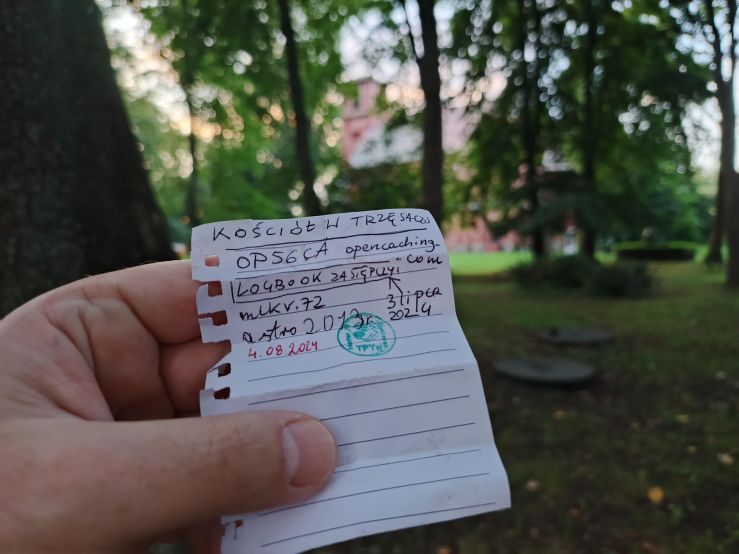 KOŚCIÓŁ W TRZĘSACZU
OP56CA opencaching.com
LOGBOOK ZASTĘPCZY!
mlkv.72
3 lipca 2024
astro2013r
4.08.2024